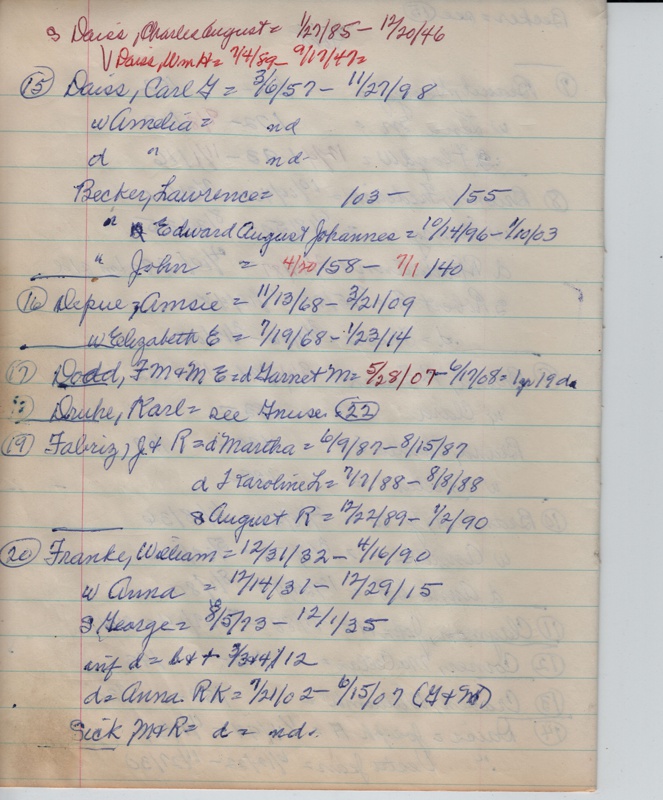 s Daiss, Charles August = 1/27/85 - 12/20/46
√ Daiss, Wm H = 7/4/89 - 9/17/47 =
(15) Daiss, Carl G = 3/6/57 - 11/27/98
w Amelia = nd
d " nd-
Becker, Lawrence = /03 - /55
" Edward August Johannes = 10/14/96 - 1/10/03
" John = 4/20/58 - 7/1/40
(16) Depue, Amsie = 11/13/68 - 3/21/09
w Elizabeth E = 7/19/68 - 1/23/14
(17) Dodd, F M & M E = d Garnet M = 5/28/07 - 6/17/08 = 1 yr 19 da
Druhe, Karl = see Gnuse (22)
(19) Fabriz, J & R = d Martha = 6/9/87 - 8/15/87
d Karoline L = 7/7/88 - 8/8/88
s August R = 12/22/89 - 1/2/90
(20) Franke, William = 12/31/32 - 4/16/90
w Anna = 12/14/31 - 12/29/15
s George = /5/73 - 12/1/35
inf d = b & + /12
d = Anna RK = 7/21/02 - 6/15/07 (G &
Sick M & R = d = nd.